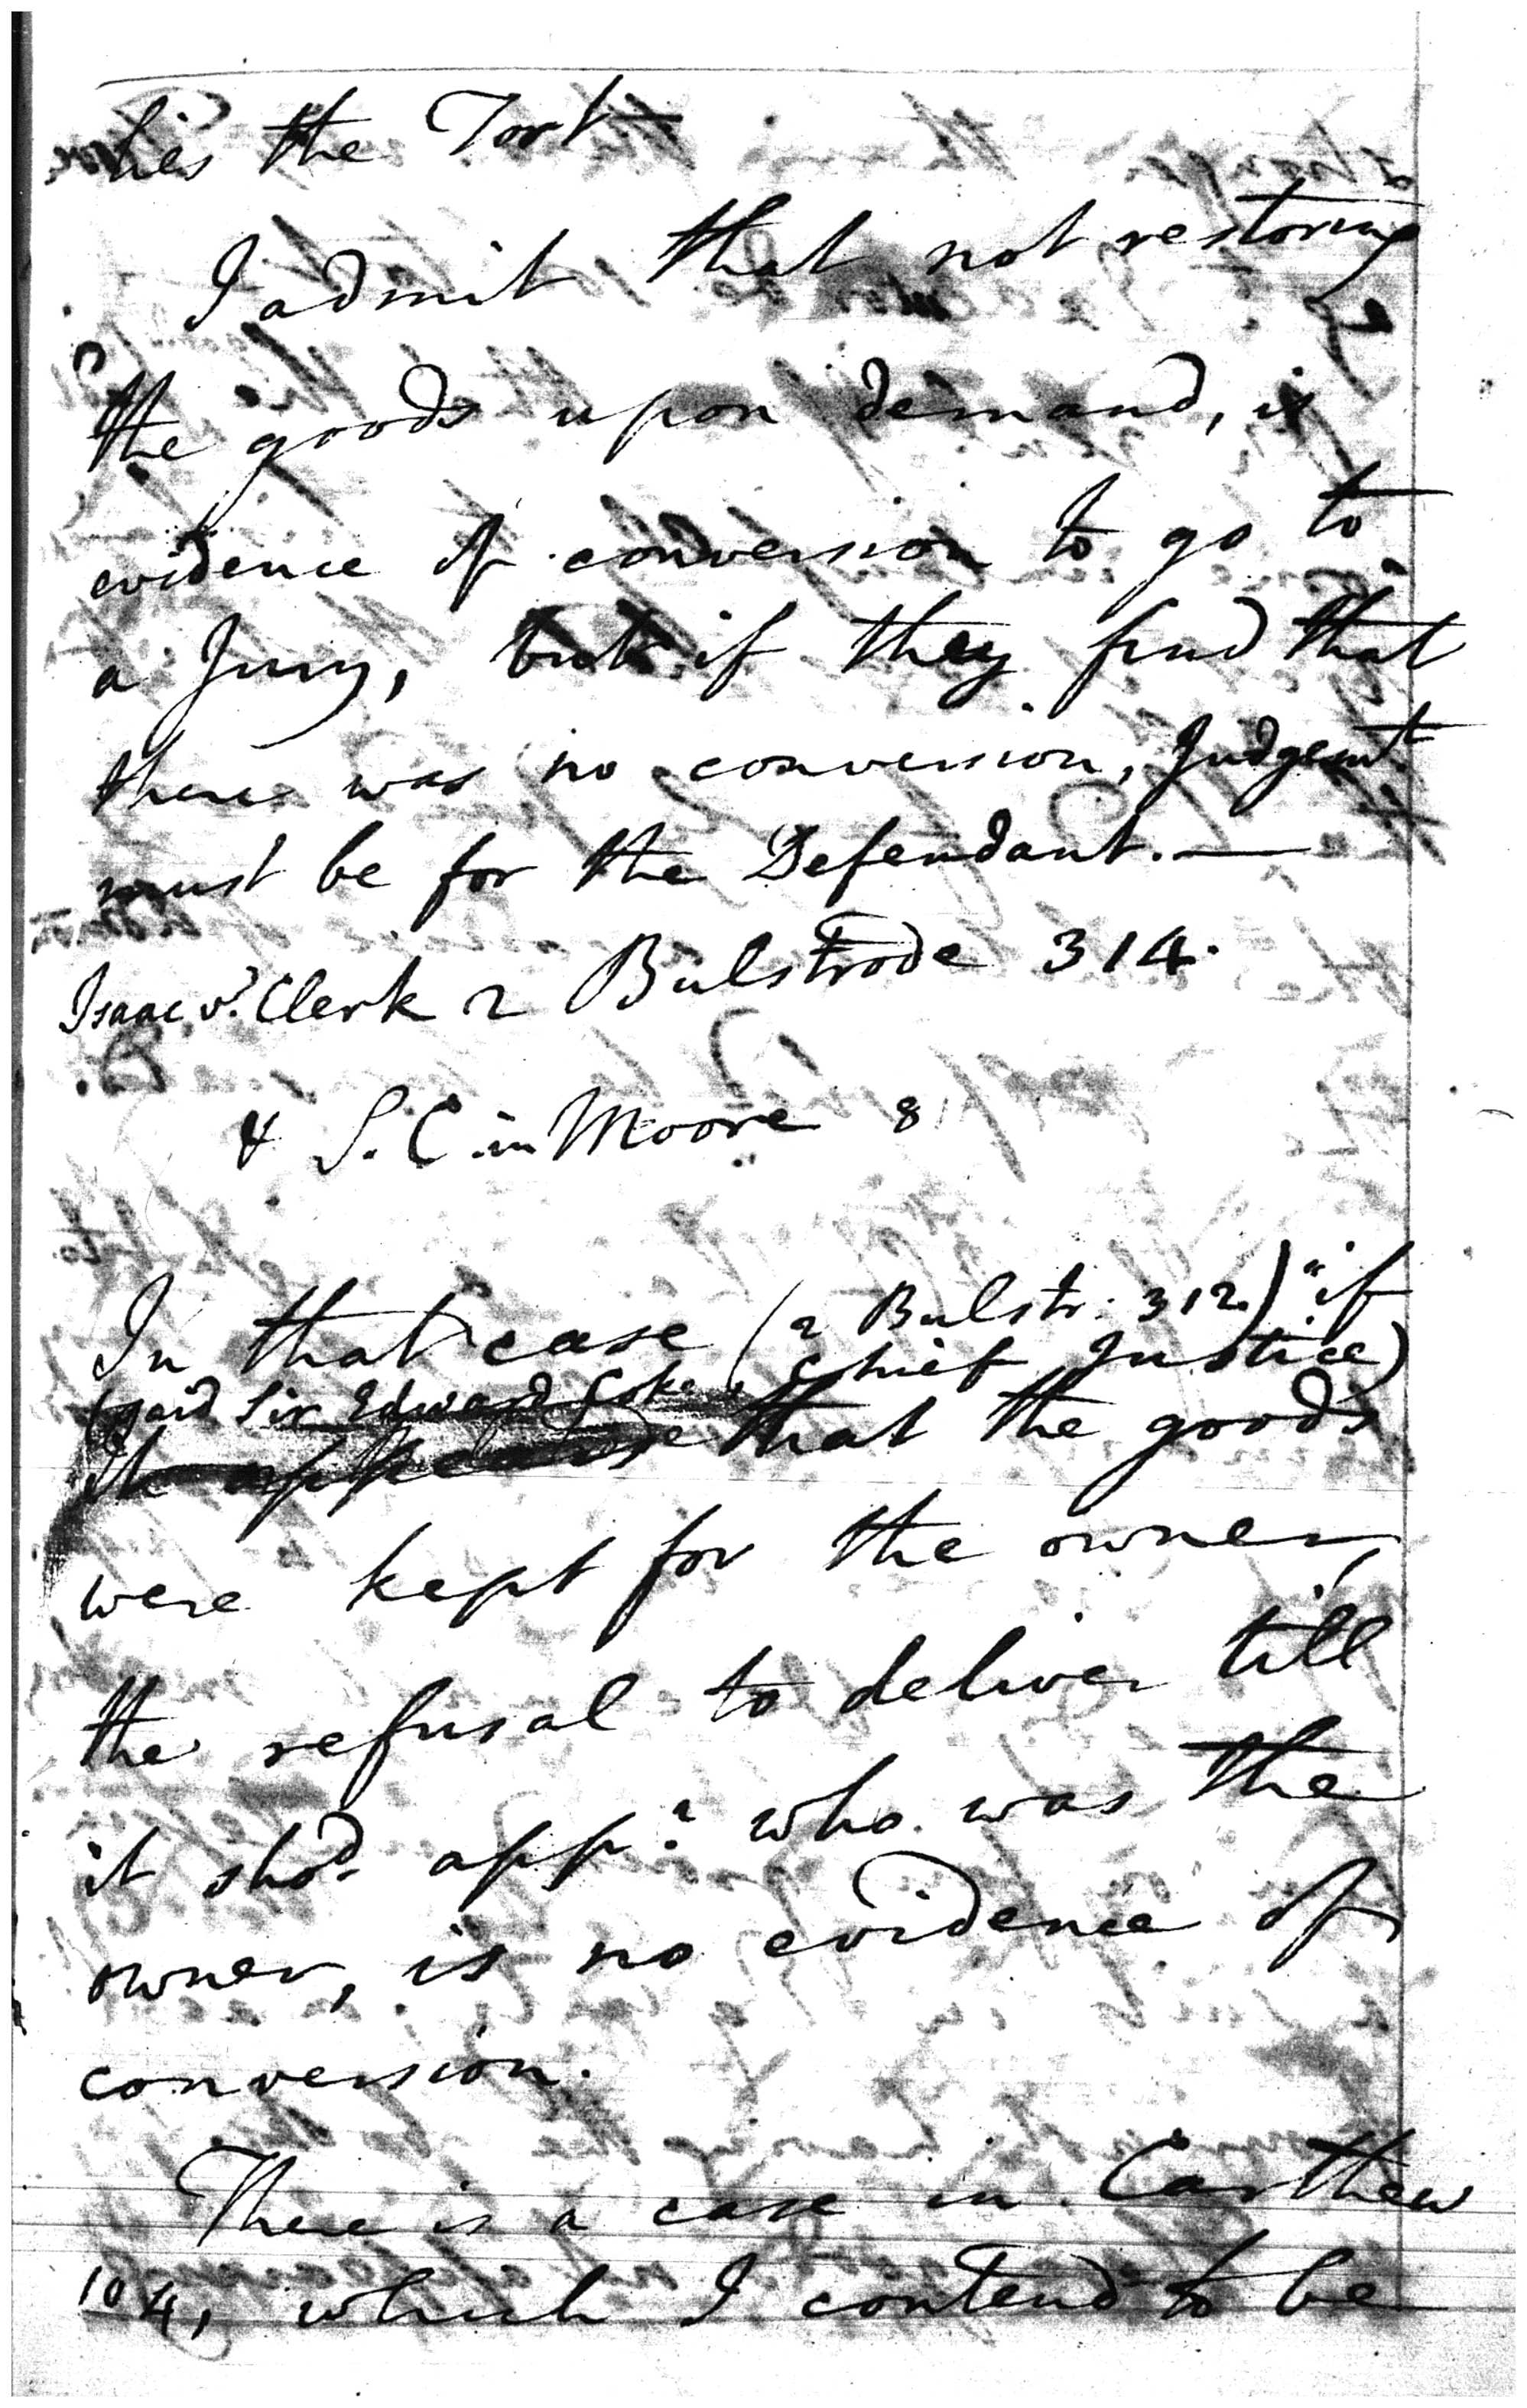 lies the Tort
I admit that not restoring
the goods upon demand, is
evidence of conversion to go to
a Jury, but if they find that
there was no conversion, Judgemt.
must be for the Defendant. —
Isaac v. Clerk 2 Bulstrode 314.
& S. C. in Moore 8
In that case (2 Bulstr. 312.) "if
(said Sir Edward Coke, Chief Justice)
it appears that the goods
were kept for the owner,
the refusal to deliver till
it shod. appr. who was the
owner, is no evidence of
conversion.
There is a case in Carthew
104, which I contend to be